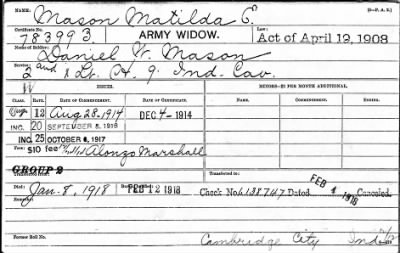 Mason Matilda E.
Certificate No. 783993 ARMY WIDOW. Law: Act of April 19, 1908
Name of Soldier: Daniel W. Mason
Service: 2 and 1 Lt. H. 9 Ind. Cav.
W ISSUES.
CLASS. RATE. DATE OF COMMENCEMENT. DATE OF CERTIFICATE. CLASS. RATE. DATE OF COMMENCEMENT. DATE OF CERTIFICATE.
12 Aug 28-1914 DEC 4-1914
INC. 20 SEPTEMBER 8, 1916
INC. 25 OCTOBER 6, 1917
Fee $10 Alonzo Marshall
GROUP 2
Transferred to:
Died: Jan. 8, 1918 FEB 12 1918 Check No. 6138747 Dated FEB 4 1918 Canceled.
Former Roll No. Cambridge City Ind.